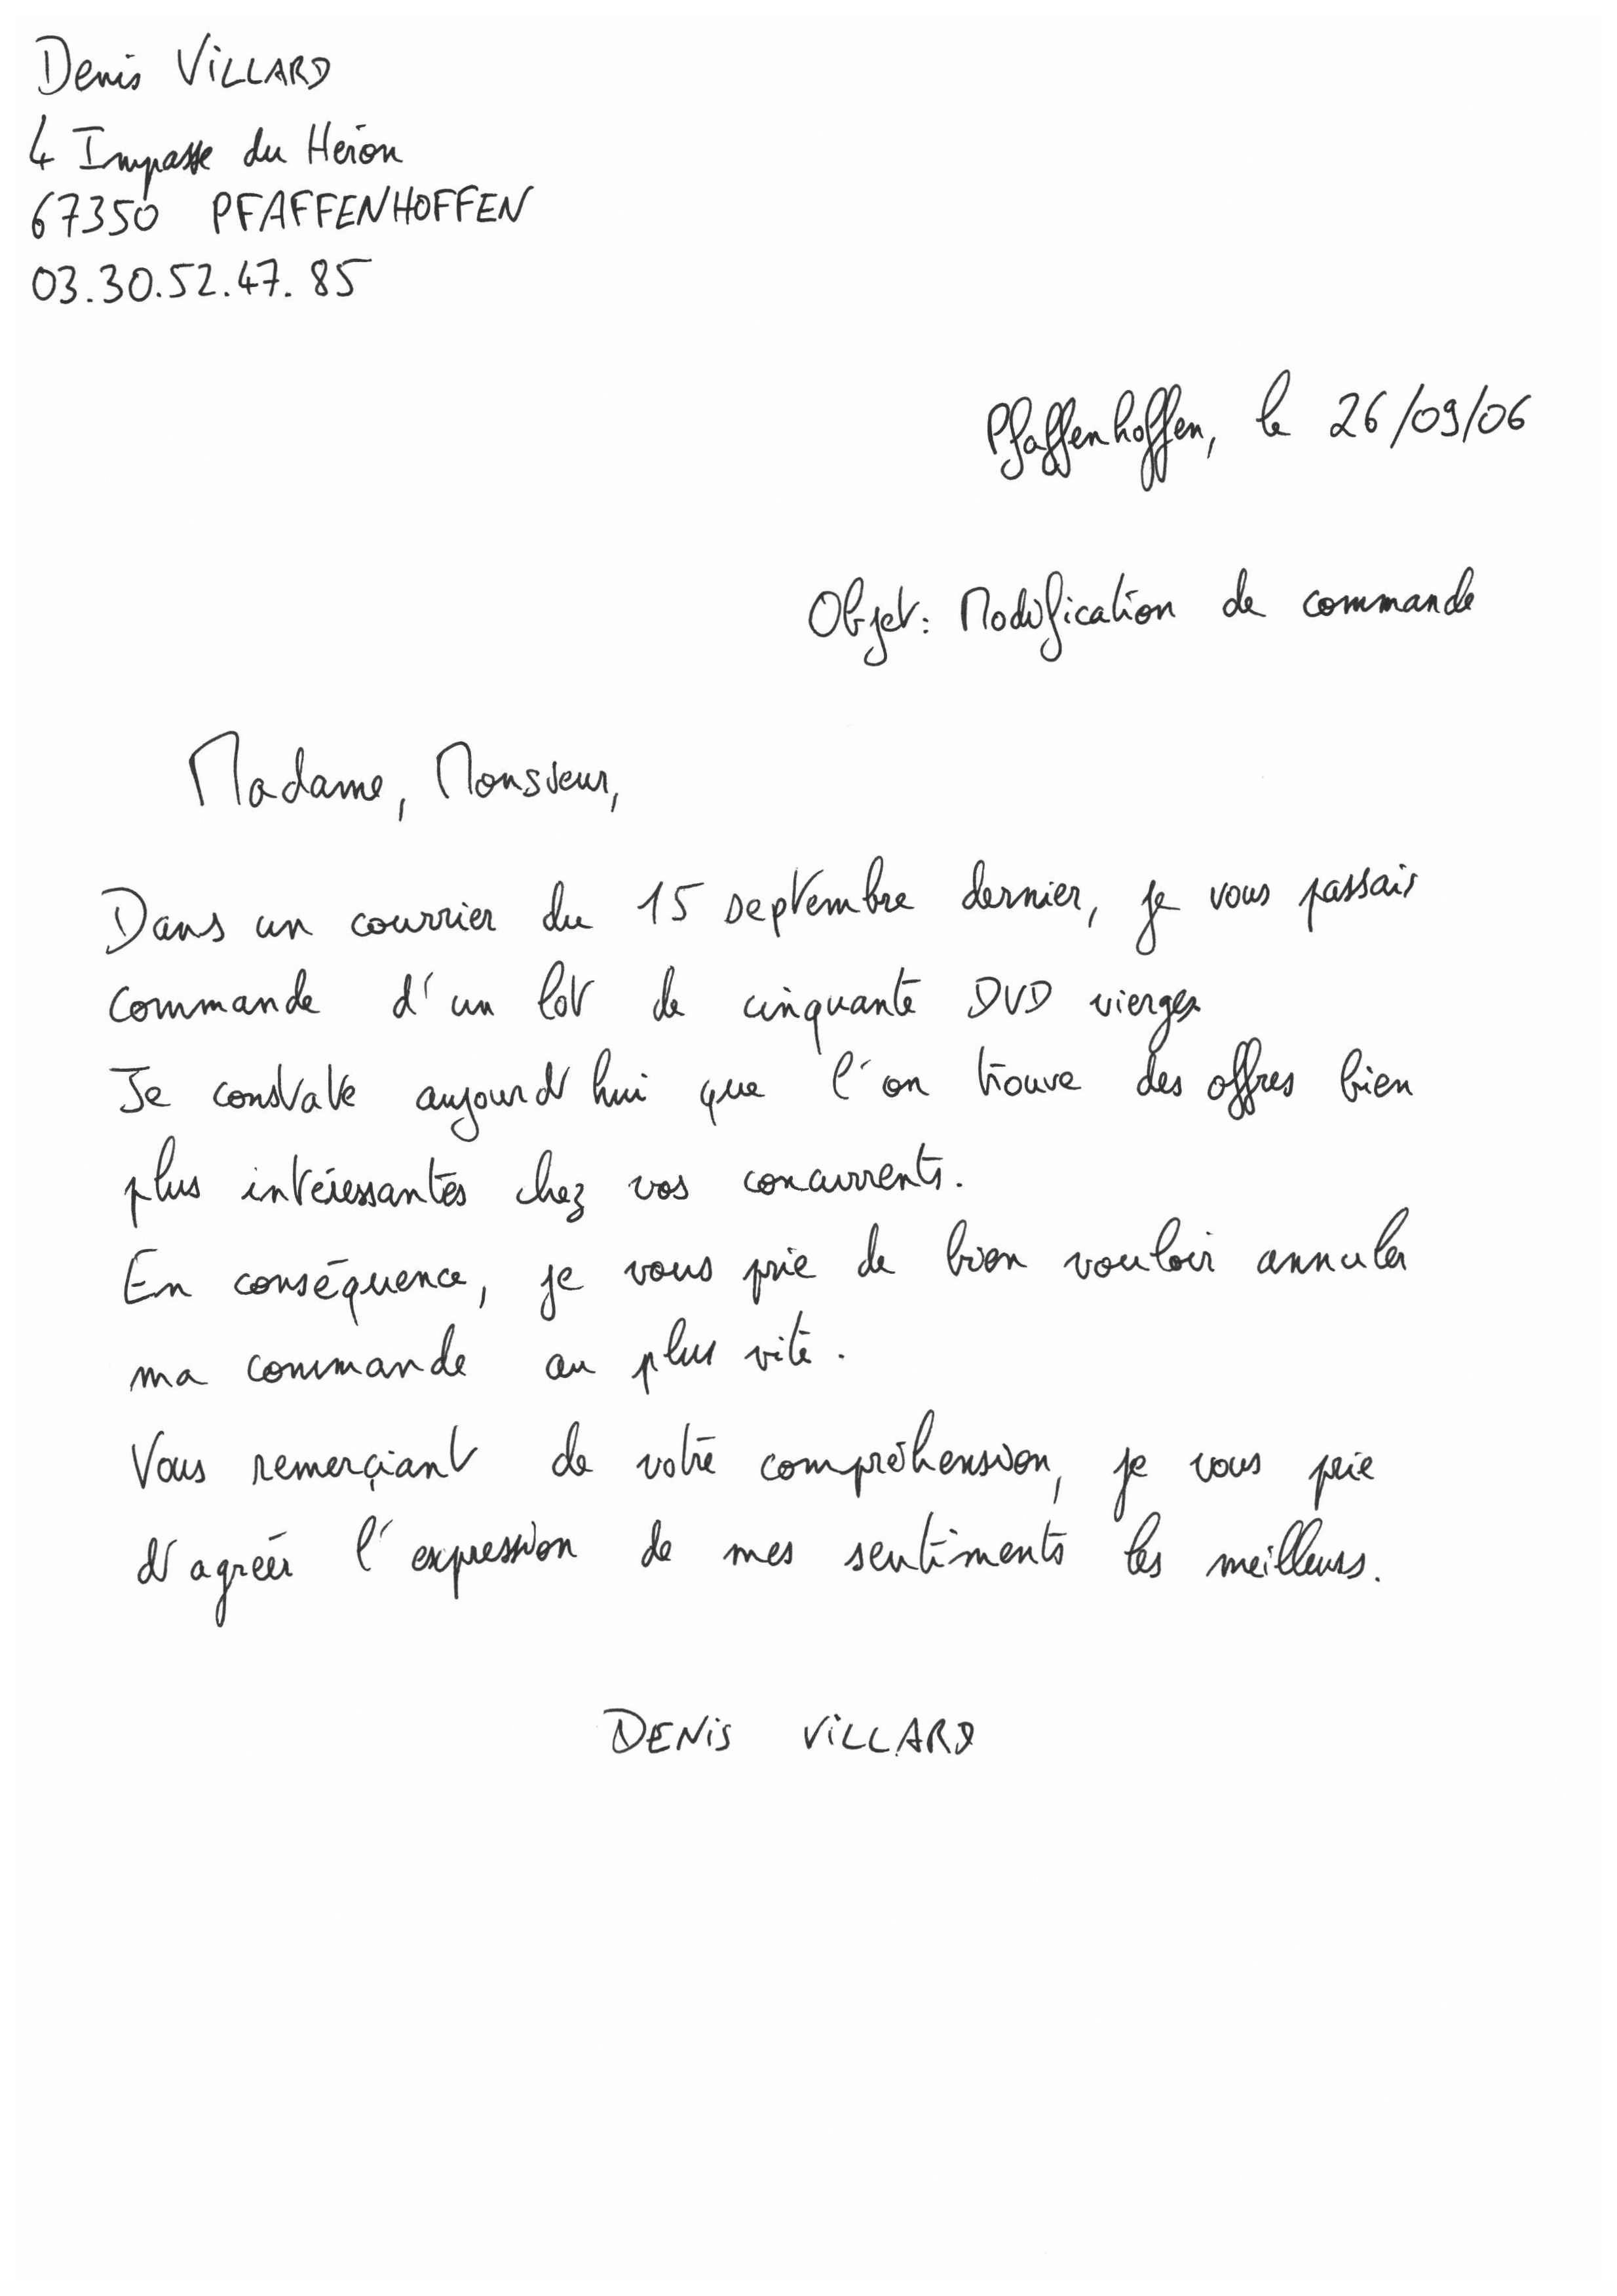 Denis VILLARD
4 Impasse du Héron
67350 PFAFFENHOFFEN
03.30.52.47.85
Pfaffenhoffen, le 26/09/06
Objet: Modification de commande
Madame, Monsieur,
Dans un courrier du 15 septembre dernier, je vous passais
commande d'un lot de cinquante DVD vierges
Je constate aujourd'hui que l'on trouve des offres bien
plus intéressantes chez vos concurrents.
En conséquence, je vous prie de bien vouloir annuler
ma commande au plus vite.
Vous remerçiant de votre compréhension, je vous prie
d'agréer l'expression de mes sentiments les meilleurs.
DENIS VILLARD